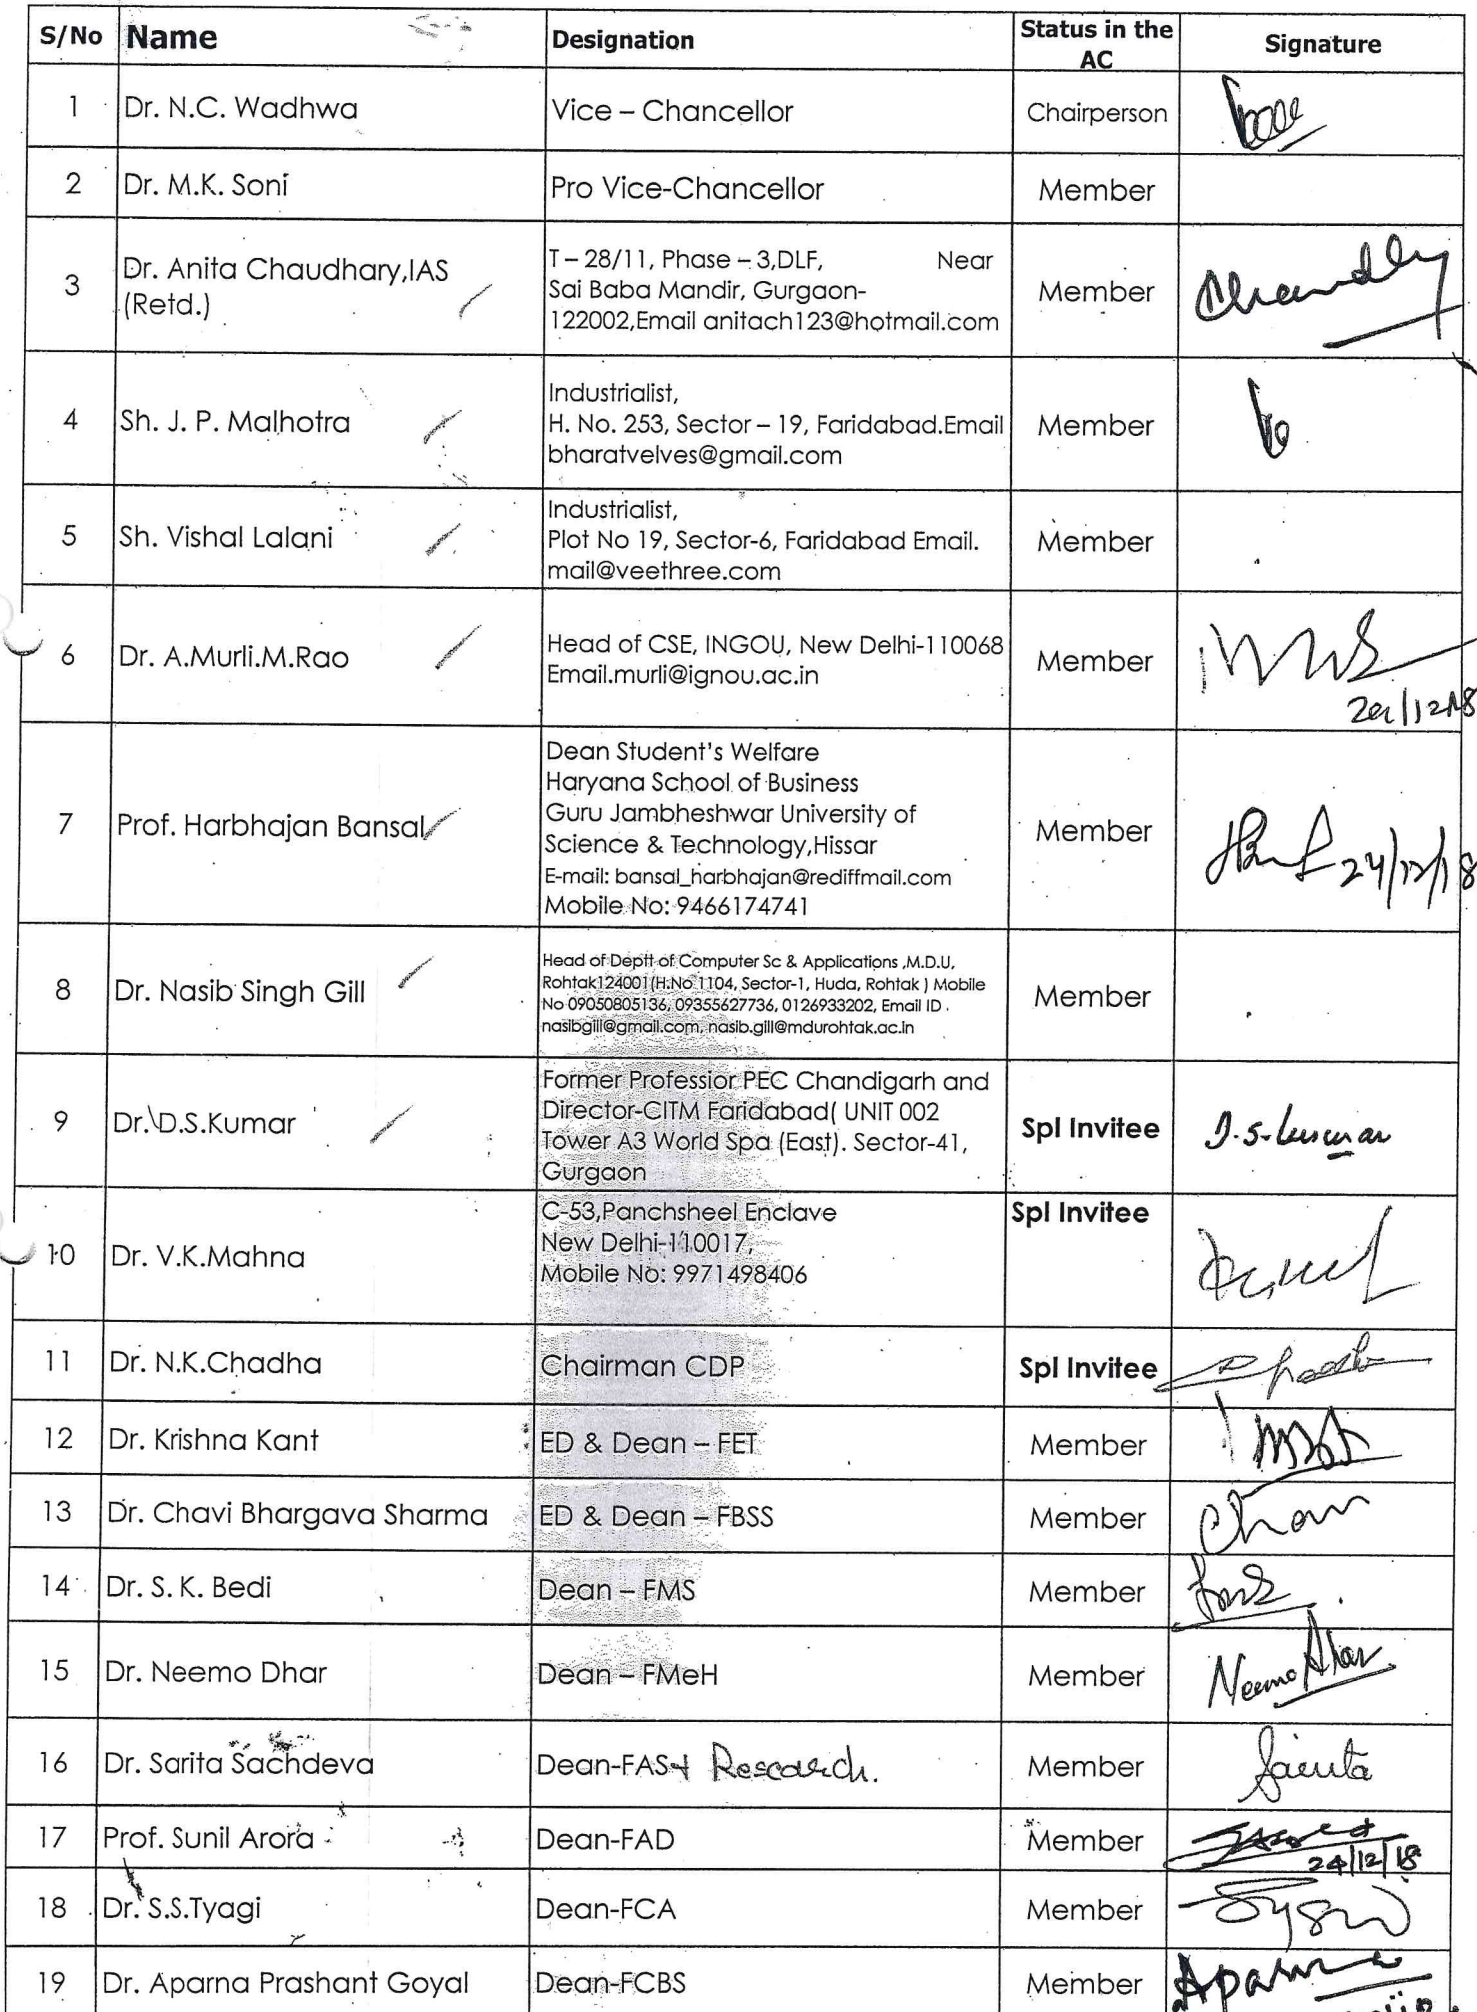 S/No Name Designation Status in the AC Signature
1 Dr. N.C. Wadhwa Vice – Chancellor Chairperson
2 Dr. M.K. Soni Pro Vice-Chancellor Member
3 Dr. Anita Chaudhary,IAS (Retd.)
T – 28/11, Phase – 3,DLF, Near
Sai Baba Mandir, Gurgaon-
122002,Email anitach123@hotmail.com
Member
4 Sh. J. P. Malhotra
Industrialist,
H. No. 253, Sector – 19, Faridabad.Email
bharatvelves@gmail.com
Member
5 Sh. Vishal Lalani
Industrialist,
Plot No 19, Sector-6, Faridabad Email.
mail@veethree.com
Member
6 Dr. A.Murli.M.Rao
Head of CSE, INGOU, New Delhi-110068
Email.murli@ignou.ac.in
Member
7 Prof. Harbhajan Bansal
Dean Student's Welfare
Haryana School of Business
Guru Jambheshwar University of
Science & Technology,Hissar
E-mail: bansal_harbhajan@rediffmail.com
Mobile No: 9466174741
Member
24/12/18
8 Dr. Nasib Singh Gill
Head of Deptt of Computer Sc & Applications ,M.D.U,
Rohtak124001(H.No 1104, Sector-1, Huda, Rohtak ) Mobile
No 09050805136, 09355627736, 0126933202, Email ID .
nasibgill@gmail.com, nasib.gill@mdurohtak.ac.in
Member
9 Dr. D.S.Kumar
Former Professior PEC Chandigarh and
Director-CITM Faridabad( UNIT 002
Tower A3 World Spa (East). Sector-41,
Gurgaon
Spl Invitee
D.S. Kumar
10 Dr. V.K.Mahna
C-53,Panchsheel Enclave
New Delhi-110017,
Mobile No: 9971498406
Spl Invitee
11 Dr. N.K.Chadha Chairman CDP Spl Invitee
12 Dr. Krishna Kant ED & Dean – FET Member
13 Dr. Chavi Bhargava Sharma ED & Dean – FBSS Member
14 Dr. S. K. Bedi Dean – FMS Member
15 Dr. Neemo Dhar Dean – FMeH Member Neemo Dhar
16 Dr. Sarita Sachdeva Dean-FAS & Research. Member Sarita
17 Prof. Sunil Arora Dean-FAD Member
24/12/18
18 Dr. S.S.Tyagi Dean-FCA Member
19 Dr. Aparna Prashant Goyal Dean-FCBS Member Aparna